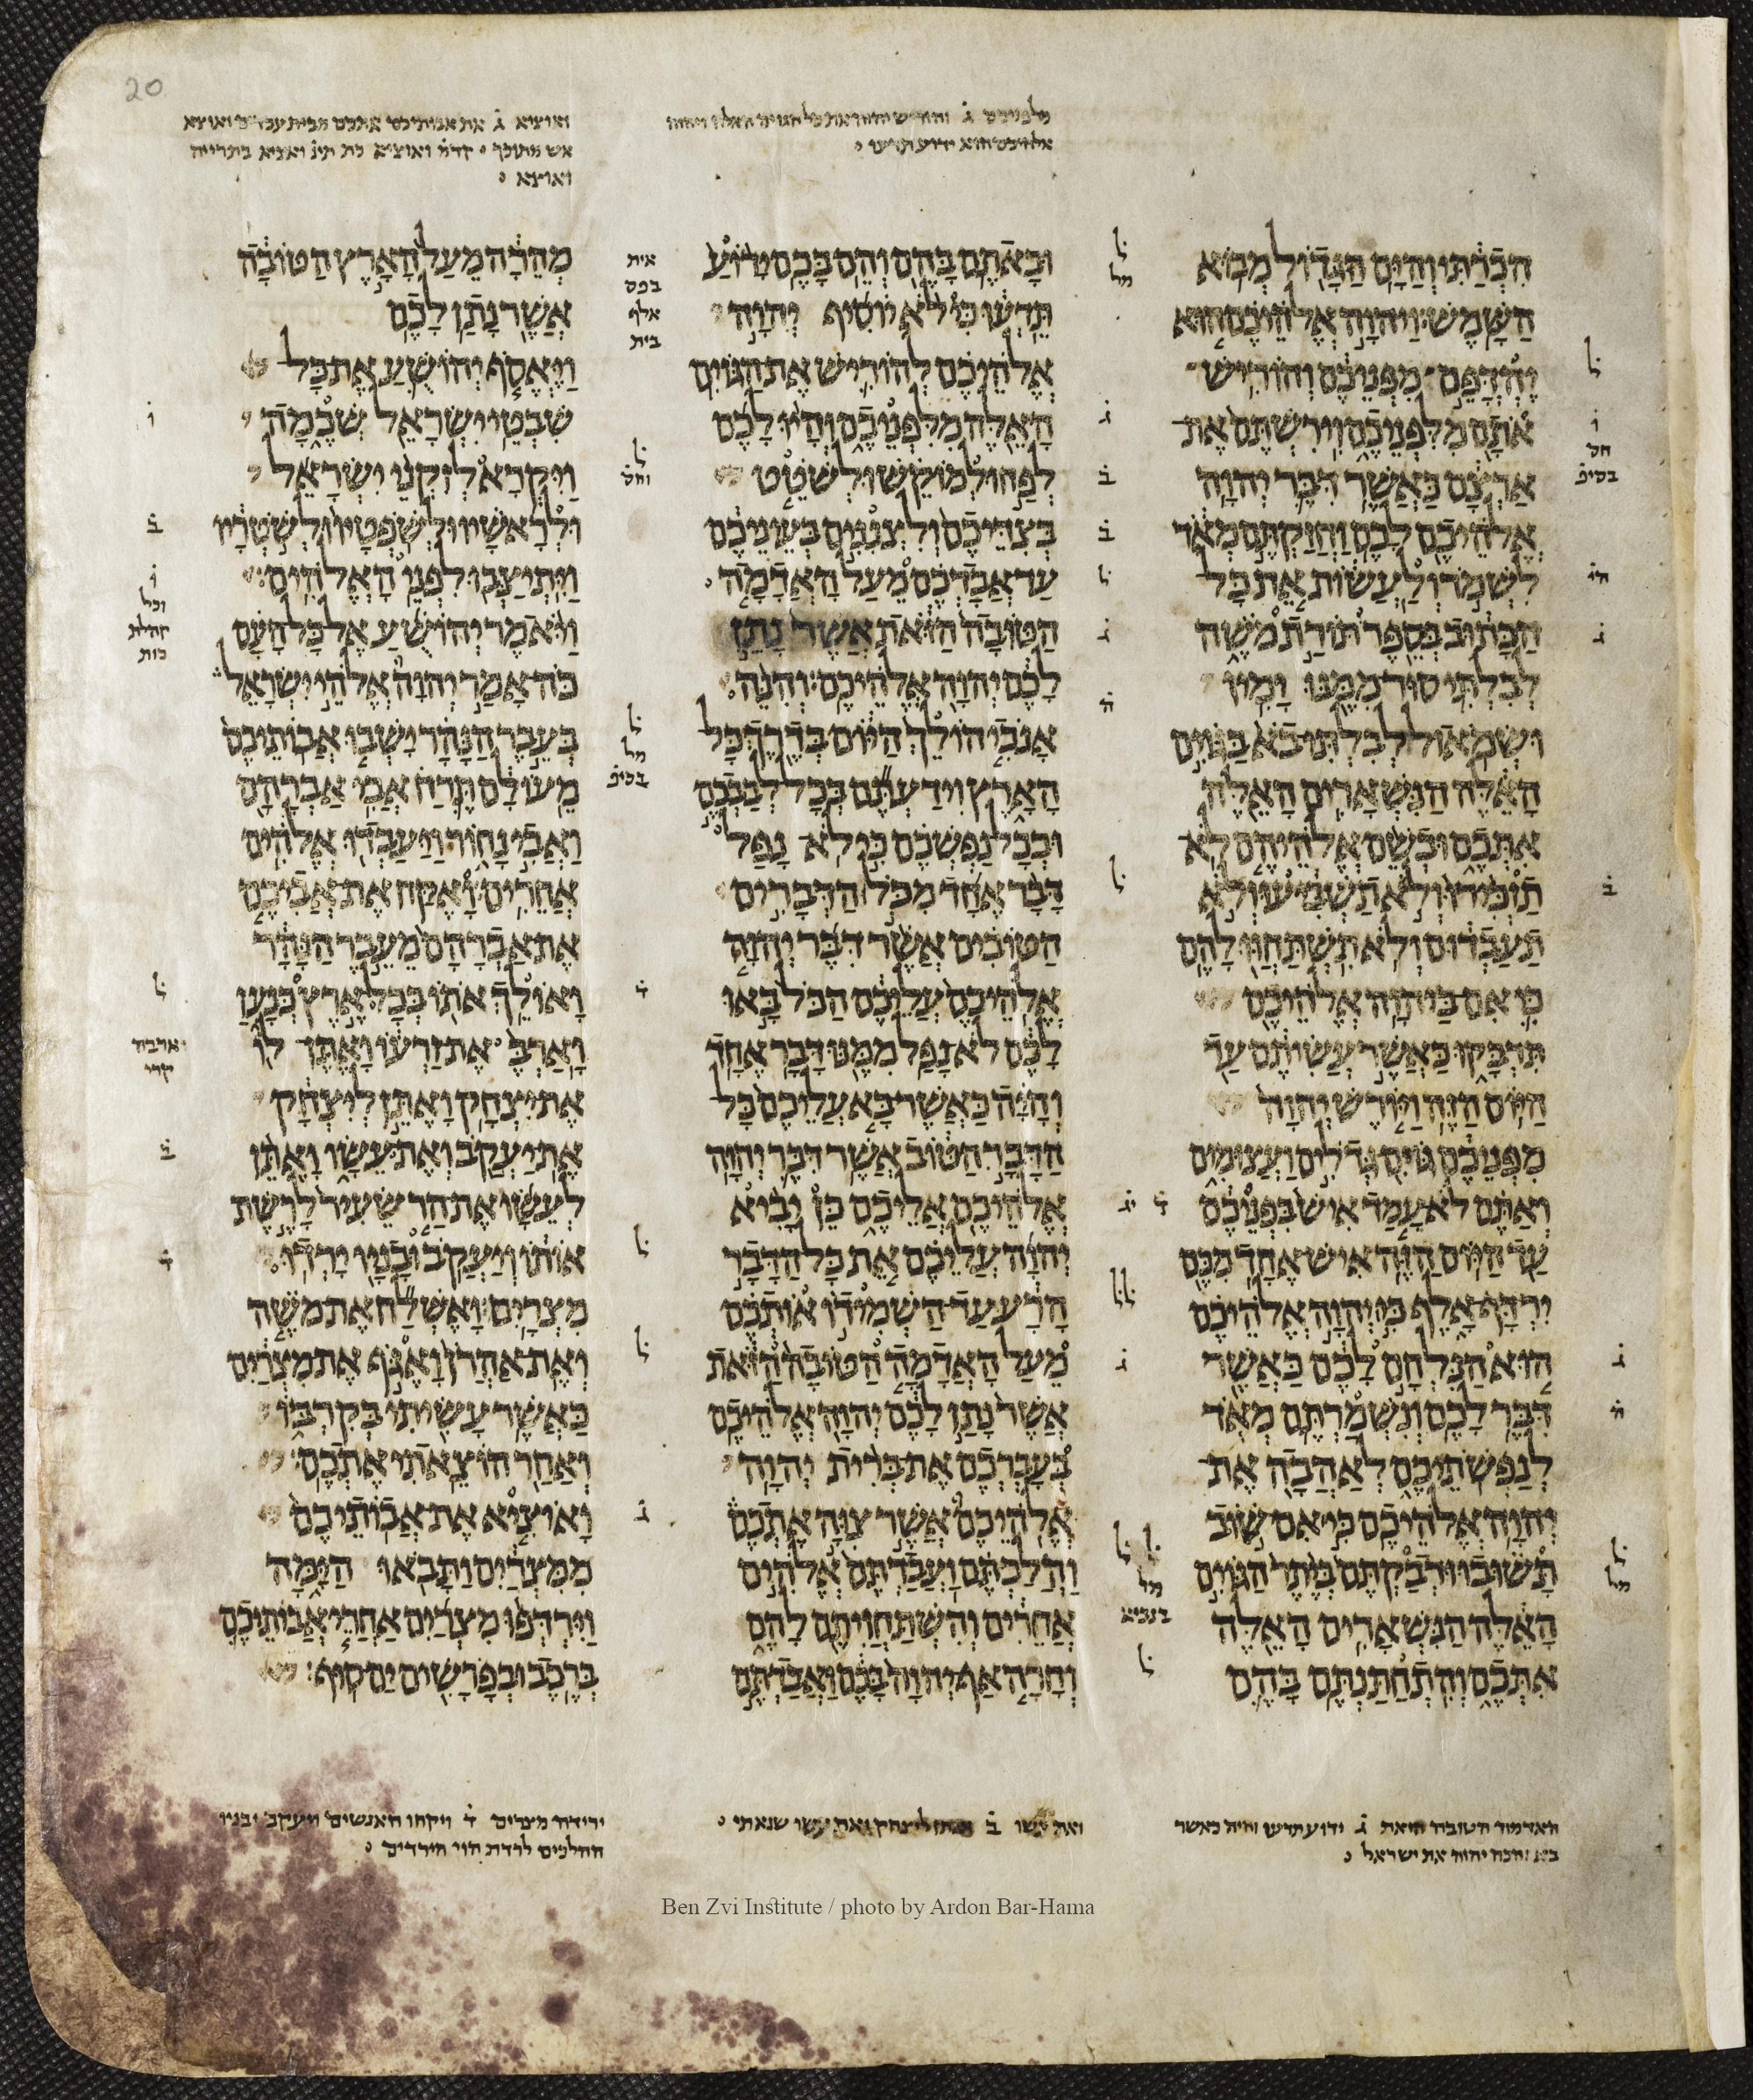 20
מלפניכם ג והוריש יהוה את כל הגוים האלה ויהוה
אלהיכם הוא ידוע תדעו
ואוציא ג את אבותיכם אתכם מבית עבדים ואוצא
אש מתוכך
ואוצא
הכרתי והים הגדול מבוא
השמש׃ ויהוה אלהיכם הוא
יהדפם מפניכם והוריש
אתם מלפניכם וירשתם את
ארצם כאשר דבר יהוה
אלהיכם לכם׃ וחזקתם מאד
לשמר ולעשות את כל
הכתוב בספר תורת משה
לבלתי סור ממנו ימין
ושמאול׃ לבלתי בא בגוים
האלה הנשארים האלה
אתכם ובשם אלהיהם לא
תזכירו ולא תשביעו ולא
תעבדום ולא תשתחוו להם׃
כי אם ביהוה אלהיכם
תדבקו כאשר עשיתם עד
היום הזה׃ ויורש יהוה
מפניכם גוים גדלים ועצומים
ואתם לא עמד איש בפניכם
עד היום הזה׃ איש אחד מכם
ירדף אלף כי יהוה אלהיכם
הוא הנלחם לכם כאשר
דבר לכם׃ ונשמרתם מאד
לנפשתיכם לאהבה את
יהוה אלהיכם׃ כי אם שוב
תשובו ודבקתם ביתר הגוים
האלה הנשארים האלה
אתכם והתחתנתם בהם
ובאתם בהם והם בכם׃ ידוע
תדעו כי לא יוסיף יהוה
אלהיכם להוריש את הגוים
האלה מלפניכם והיו לכם
לפח ולמוקש ולשטט
בצדיכם ולצננים בעיניכם
עד אבדכם מעל האדמה
הטובה הזאת אשר נתן
לכם יהוה אלהיכם׃ והנה
אנכי הולך היום בדרך כל
הארץ וידעתם בכל לבבכם
ובכל נפשכם כי לא נפל
דבר אחד מכל הדברים
הטובים אשר דבר יהוה
אלהיכם עליכם הכל באו
לכם לא נפל ממנו דבר אחד׃
והיה כאשר בא עליכם כל
הדבר הטוב אשר דבר יהוה
אלהיכם אליכם כן יביא
יהוה עליכם את כל הדבר
הרע עד השמידו אותכם
מעל האדמה הטובה הזאת
אשר נתן לכם יהוה אלהיכם׃
בעברכם את ברית יהוה
אלהיכם אשר צוה אתכם
והלכתם ועבדתם אלהים
אחרים והשתחויתם להם
וחרה אף יהוה בכם ואבדתם
מהרה מעל הארץ הטובה
אשר נתן לכם׃
ויאסף יהושע את כל
שבטי ישראל שכמה
ויקרא לזקני ישראל
ולראשיו ולשפטיו ולשטריו
ויתיצבו לפני האלהים׃
ויאמר יהושע אל כל העם
כה אמר יהוה אלהי ישראל
בעבר הנהר ישבו אבותיכם
מעולם תרח אבי אברהם
ואבי נחור ויעבדו אלהים
אחרים׃ ואקח את אביכם
את אברהם מעבר הנהר
ואולך אתו בכל ארץ כנען
וארב את זרעו ואתן לו
את יצחק׃ ואתן ליצחק
את יעקב ואת עשו ואתן
לעשו את הר שעיר לרשת
אותו ויעקב ובניו ירדו
מצרים׃ ואשלח את משה
ואת אהרן ואגף את מצרים
כאשר עשיתי בקרבו
ואחר הוצאתי אתכם׃
ואוציא את אבותיכם
ממצרים ותבאו הימה
וירדפו מצרים אחרי אבותיכם
ברכב ובפרשים ים סוף׃
האדמה הטובה הזאת ג ידוע תדעו והיה כאשר
בא והכה יהוה את ישראל
ואת עשו ב ואתן ליצחק ואת עשו שנאתי
ירידה מצרים ד ויקחו האנשים ויעקב ובניו
ההלכים לרדת הוי הירדים
Ben Zvi Institute / photo by Ardon Bar-Hama